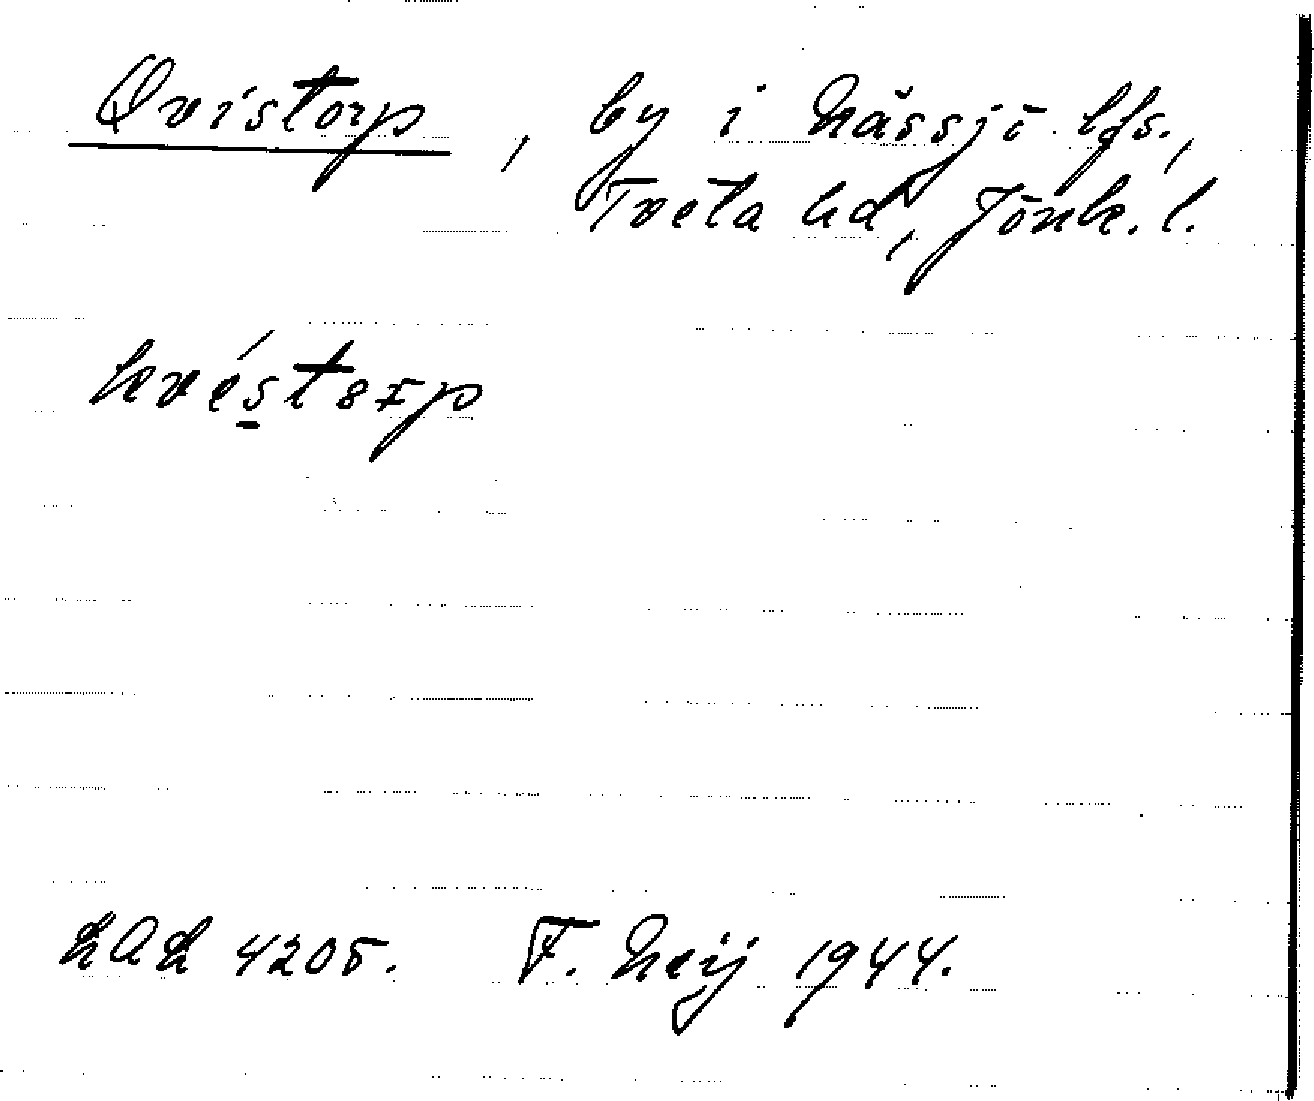 Qvistorp, by i Nässjö lfs.,
Tveta hd, Jönk. l.
LAL 4205. F. Neij 1944.